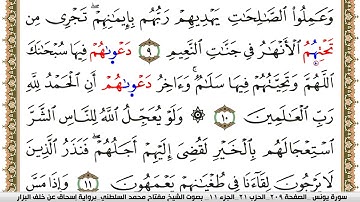 وَعَمِلُوا۟ الصَّـٰلِحَـٰتِ يَهْدِيهِمْ رَبُّهُم بِإِيمَـٰنِهِمْ تَجْرِى مِن
تَحْتِهُمُ الْأَنْهَـٰرُ فِى جَنَّـٰتِ النَّعِيمِ ٩ دَعْوَىٰهُمْ فِيهَا سُبْحَـٰنَكَ
اللَّهُمَّ وَتَحِيَّتُهُمْ فِيهَا سَلَـٰمٌ وَءَاخِرُ دَعْوَىٰهُمْ أَنِ الْحَمْدُ لِلَّهِ
رَبِّ الْعَـٰلَمِينَ ١٠ ۞ وَلَوْ يُعَجِّلُ اللَّهُ لِلنَّاسِ الشَّرَّ
اسْتِعْجَالَهُم بِالْخَيْرِ لَقُضِىَ إِلَيْهِمْ أَجَلُهُمْ فَنَذَرُ الَّذِينَ
لَا يَرْجُونَ لِقَآءَنَا فِى طُغْيَـٰنِهِمْ يَعْمَهُونَ ١١ وَإِذَا مَسَّ
سورة يونس _ الصفحة ٢٠٩ _ الحزب ٢١ _ الجزء ١١ _ بصوت الشيخ مفتاح محمد السلطني _ برواية إسحاق عن خلف البزار